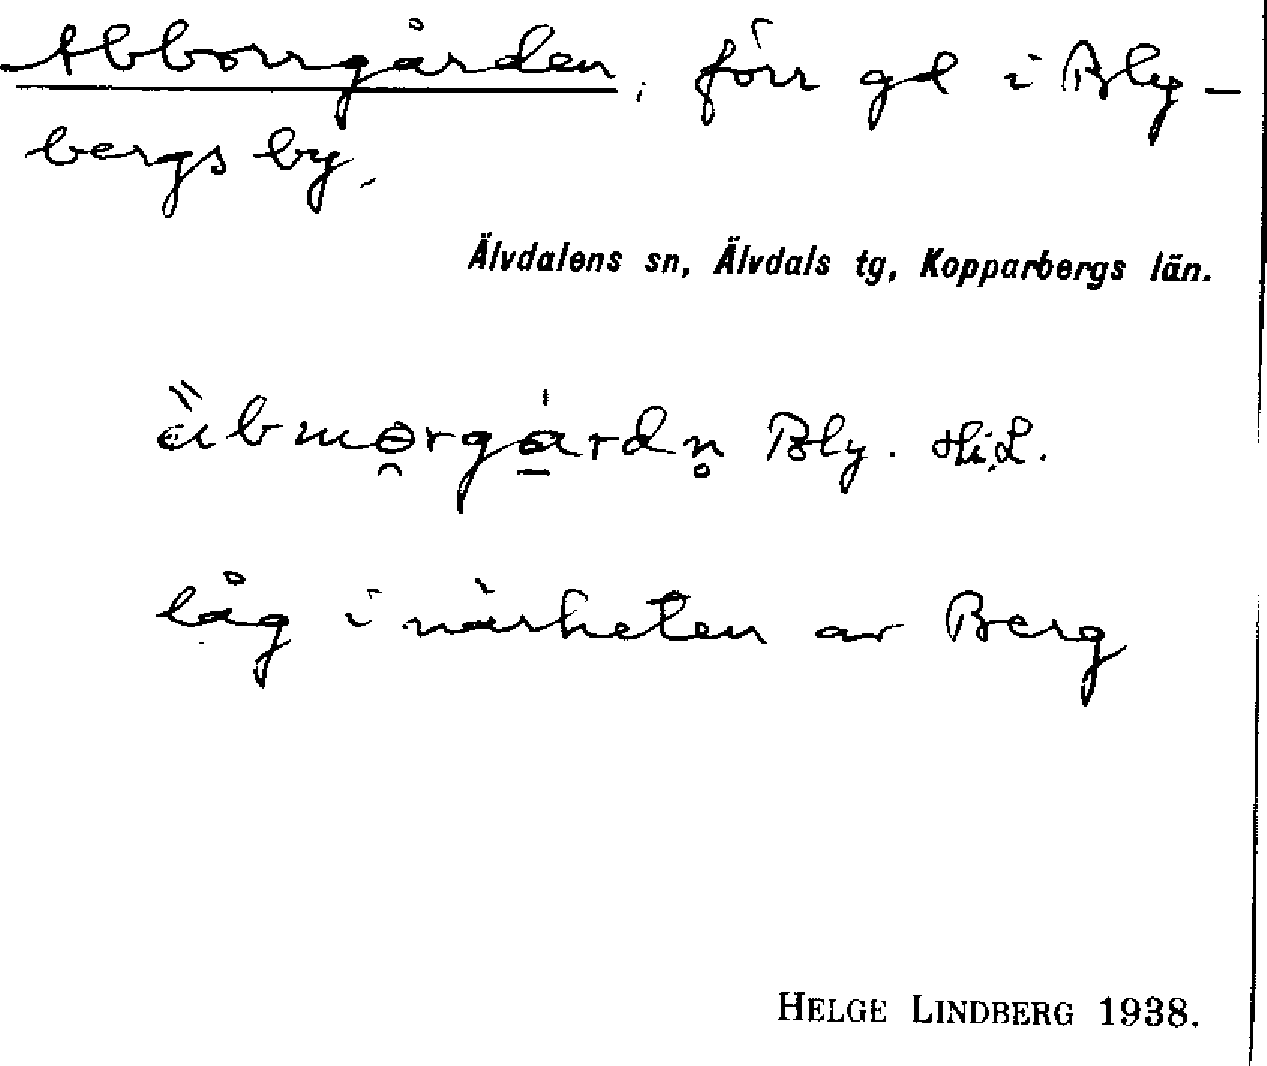 Abborrgården, förr gd i Bly-
bergs by.
Älvdalens sn, Älvdals tg, Kopparbergs län.
Bly.
låg i närheten av Berg
HELGE LINDBERG 1938.